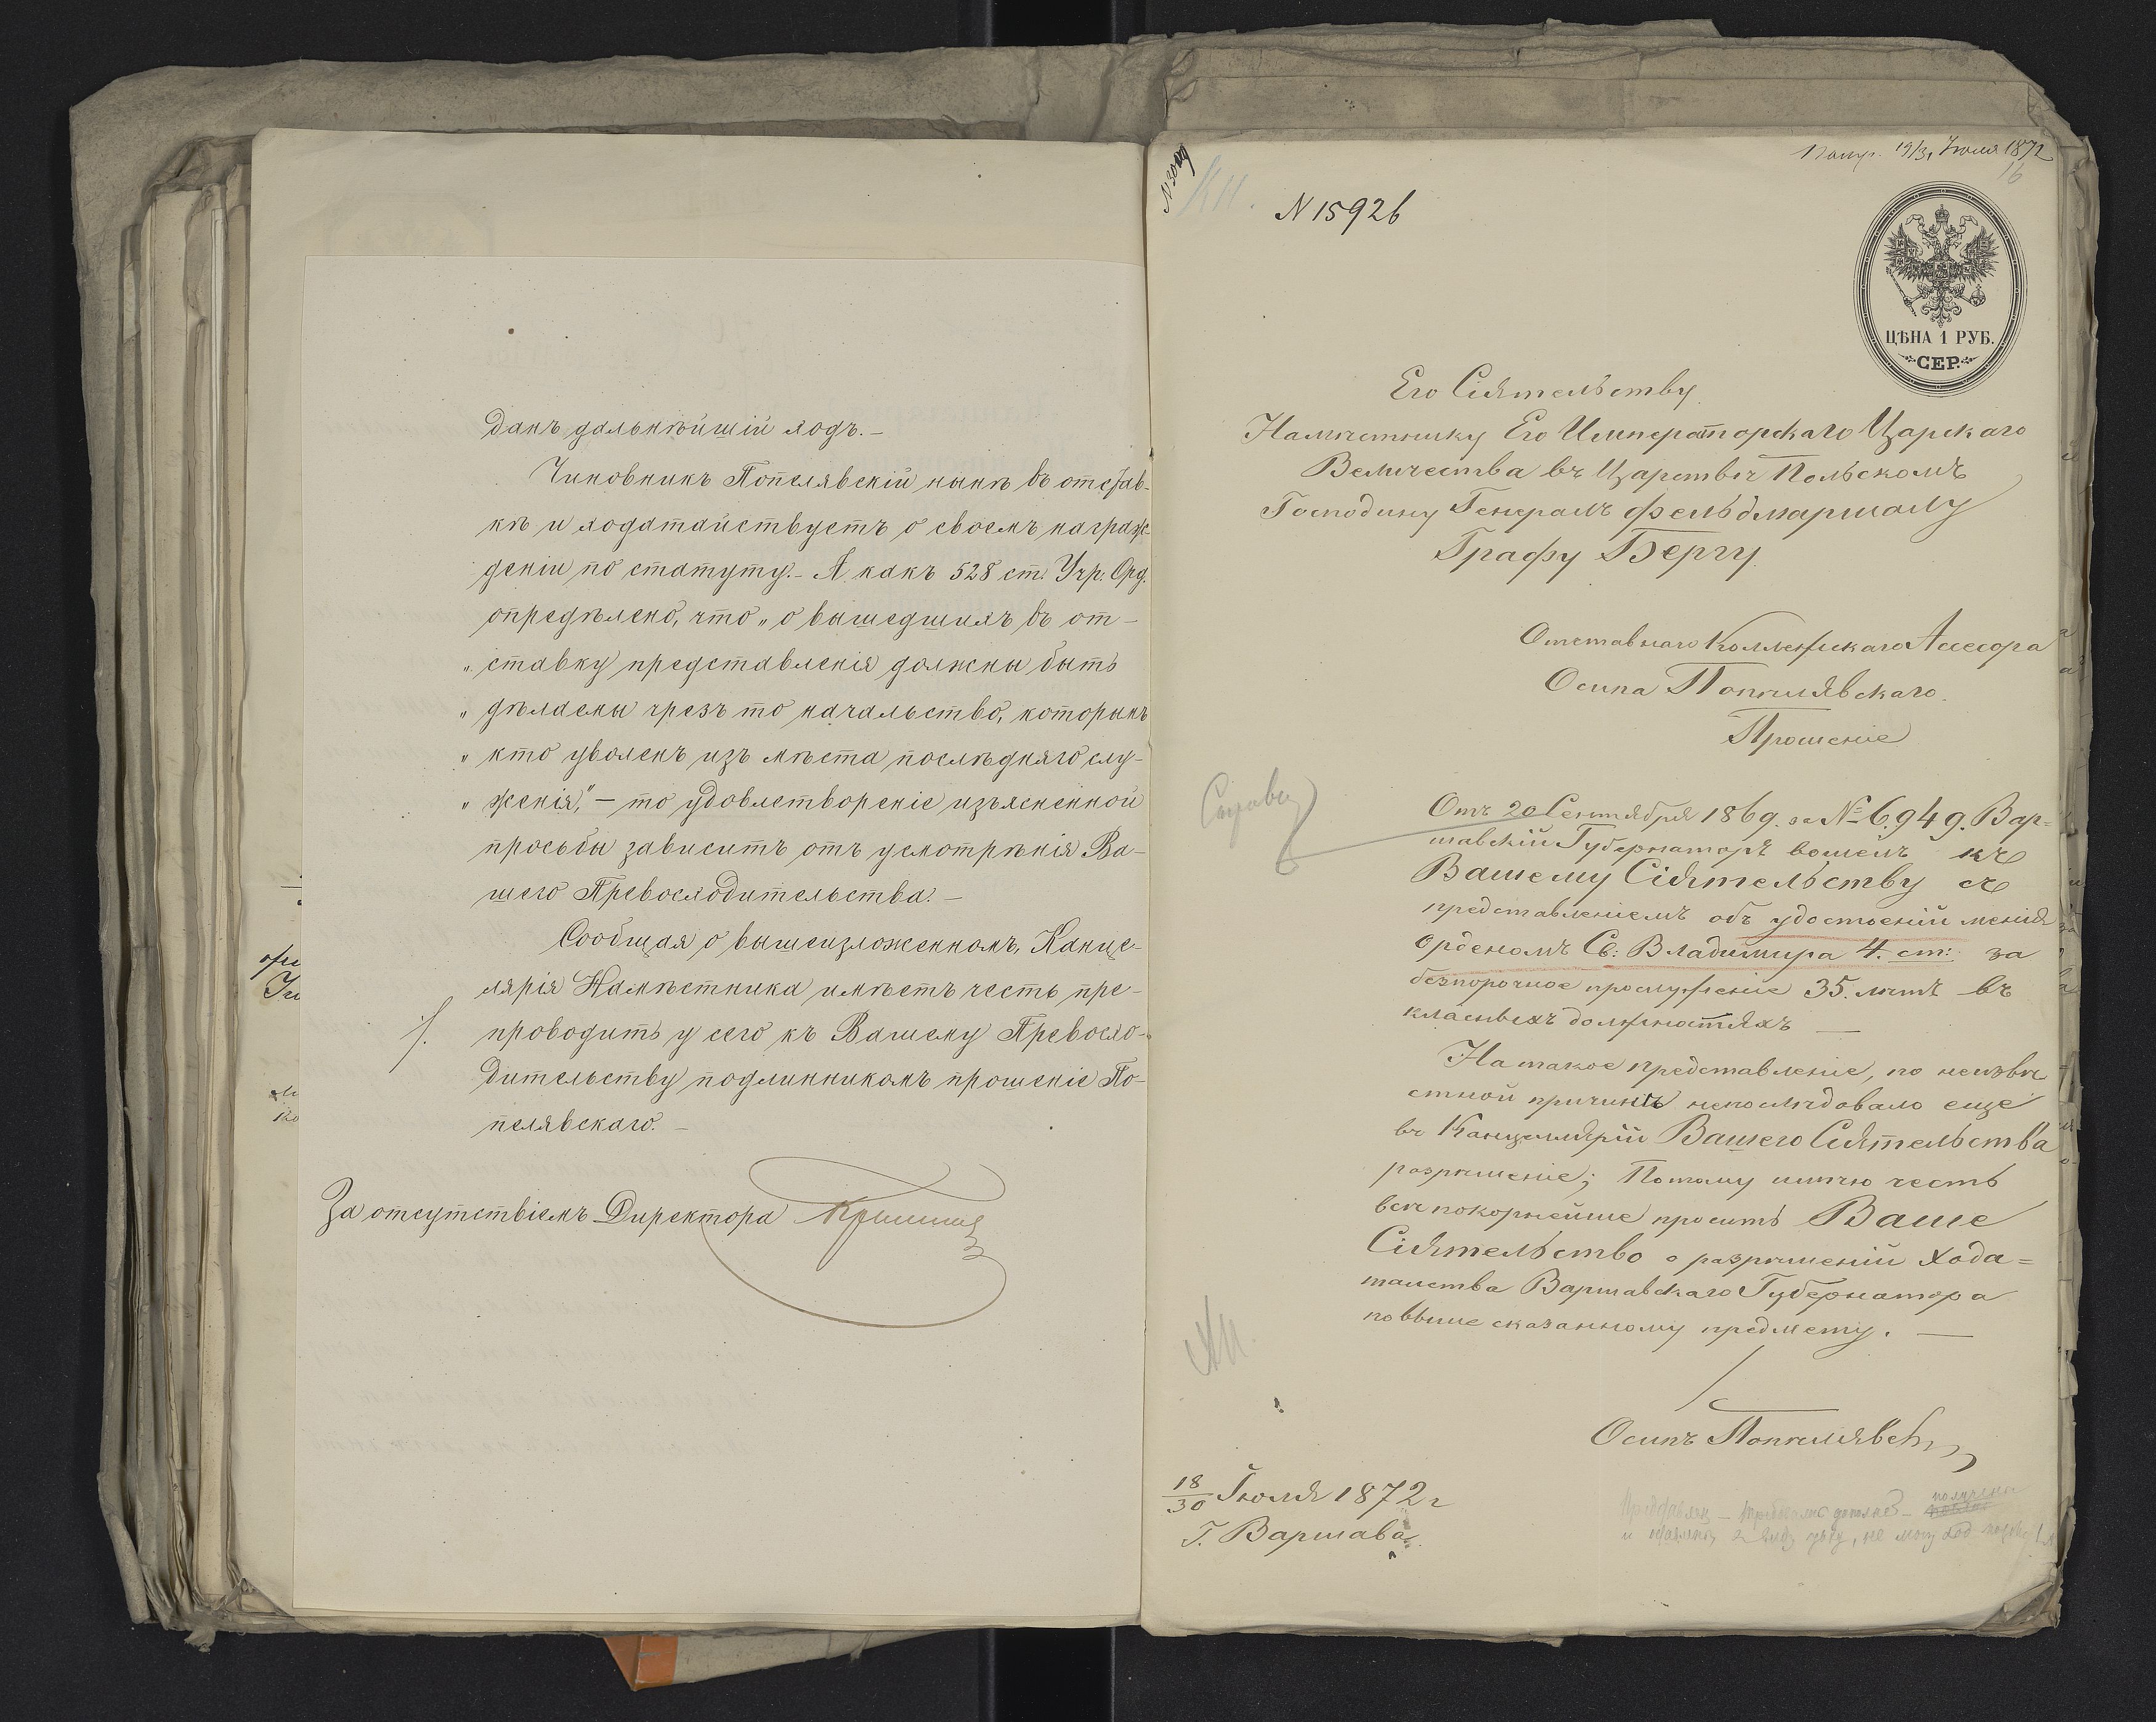 данъ дальнѣйшій ходъ.—
Чиновникъ Попелявскій нынѣ въ отстав-
кѣ и ходатайствуетъ о своемъ награж-
деніи по статуту.— А какъ 528 ст. Учр. Орд.
опредѣлено, что „о вышедшихъ въ от-
„ставку представленія должны быть
„дѣлаемы чрезъ то начальство, которымъ
„кто уволенъ изъ мѣста послѣдняго слу-
„женія,“— то удовлетвореніе изъясненной
просьбы зависитъ отъ усмотрѣнія Ва-
шего Превосходительства.—
Сообщая о вышеизложенномъ, Канце-
лярія Намѣстника имѣетъ честь пре-
проводить у сего къ Вашему Превосхо-
дительству подлинникомъ прошеніе По-
пелявскаго.—
За отсутствіемъ Директора
19/31 Іюля 1872
N 15926
ЦѢНА 1 РУБ.
СЕР.
Его Сіятельству
Намѣстнику Его Императорскаго Царскаго
Величества въ Царствѣ Польскомъ
Господину Генералъ Фельдмаршалу
Графу Бергу
Отставнаго Коллежскаго Ассесора
Осипа Попѣлявскаго.
Прошеніе
Отъ 20 Сентября 1869. за № 6.949. Вар=
шавскій Губернаторъ вошелъ къ
Вашему Сіятельству съ
представленіемъ объ удостоеніи меня
орденомъ Св: Владимира 4. ст: за
безпорочное прослуженіе 35. лѣтъ въ
класныхъ должностяхъ —
На такое представленіе, по неизвѣ
стной причинѣ непослѣдовало еще
въ Канцелляріи Вашего Сіятельства
разрѣшеніе; Потому имѣю честь
всѣпокорнѣйше просить Ваше
Сіятельство о разрѣшеніи хода=
таиства Варшавскаго Губернатора
по выше сказанному предмету. —
Осипъ Попѣлявск
18/30 Іюля 1872 г
Г. Варшава.